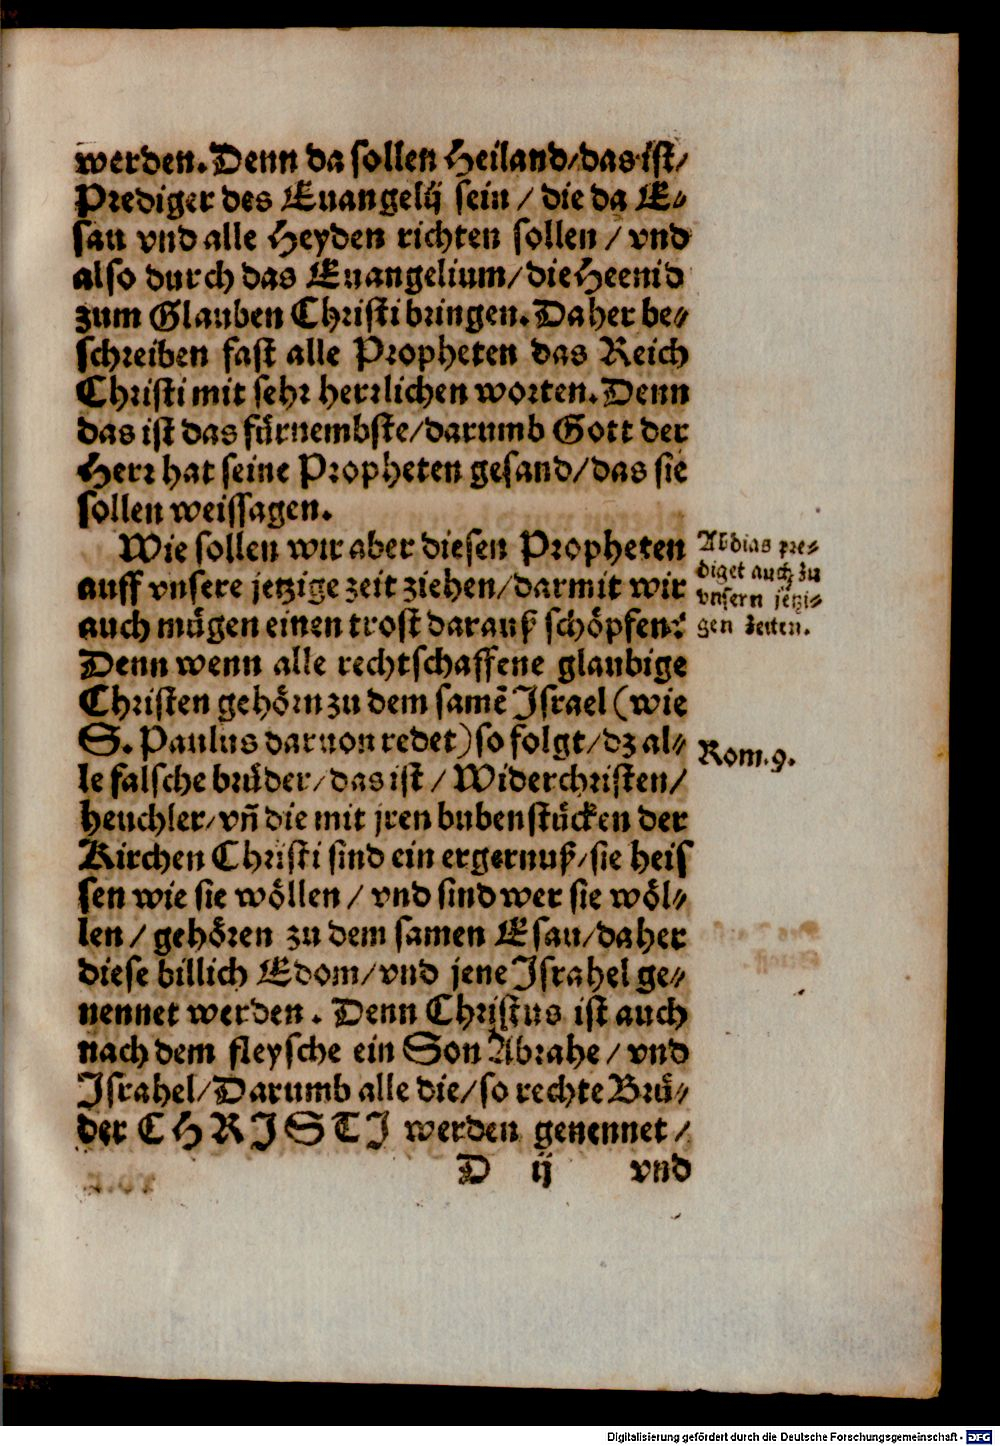 werden. Denn da sollen Heiland/das ist/
Prediger des Euangelij sein / die da E⸗
sau vnd alle Heyden richten sollen / vnd
also durch das Euangelium/die
zum Glauben Christi bringen. Daher be⸗
schreiben fast alle Propheten das Reich
Christi mit sehr herrlichen worten. Denn
das ist das fürnembste/darumb Gott der
Herr hat seine Propheten gesand/das sie
sollen weissagen.
Wie sollen wir aber diesen Propheten
auff vnsere jetzige zeit ziehen/darmit wir
auch mügen einen trost darauß schöpfen?
Denn wenn alle rechtschaffene glaubige
Christen gehörn zu dem samē Israel (wie
S. Paulus daruon redet) so folgt/dz al⸗
le falsche brüder/das ist / Widerchristen/
heuchler/vñ die mit jren bubenstücken der
Kirchen Christi sind ein ergernuß/sie heis
sen wie sie wöllen / vnd sind wer sie wöl⸗
len / gehören zu dem samen Esau/daher
diese billich Edom/vnd jene Israhel ge⸗
nennet werden . Denn Christus ist auch
nach dem fleysche ein Son Abrahe / vnd
Israhel/Darumb alle die/so rechte Brü⸗
der CHRISTI werden genennet /
D ij vnd
Abdias pre⸗
diget auch zu
vnsern jetzi⸗
gen zeiten.
Rom. 9.
Digitalisierung gefördert durch die Deutsche Forschungsgemeinschaft - DFG